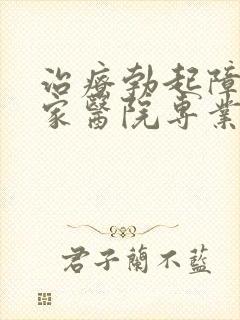 治療勃起障
家醫院專業
君子蘭不藍